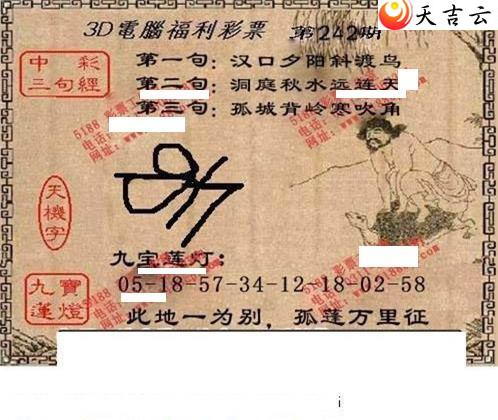 天吉云
3D電腦福利彩票 第242期
中彩三句經
第一句：汉口夕阳斜渡鸟
第二句：洞庭秋水远连天
第三句：孤城背岭寒吹角
天機字
九宝莲灯：
九寶蓮燈
05-18-57-34-12-18-02-58
此地一为别，孤莲万里征
i